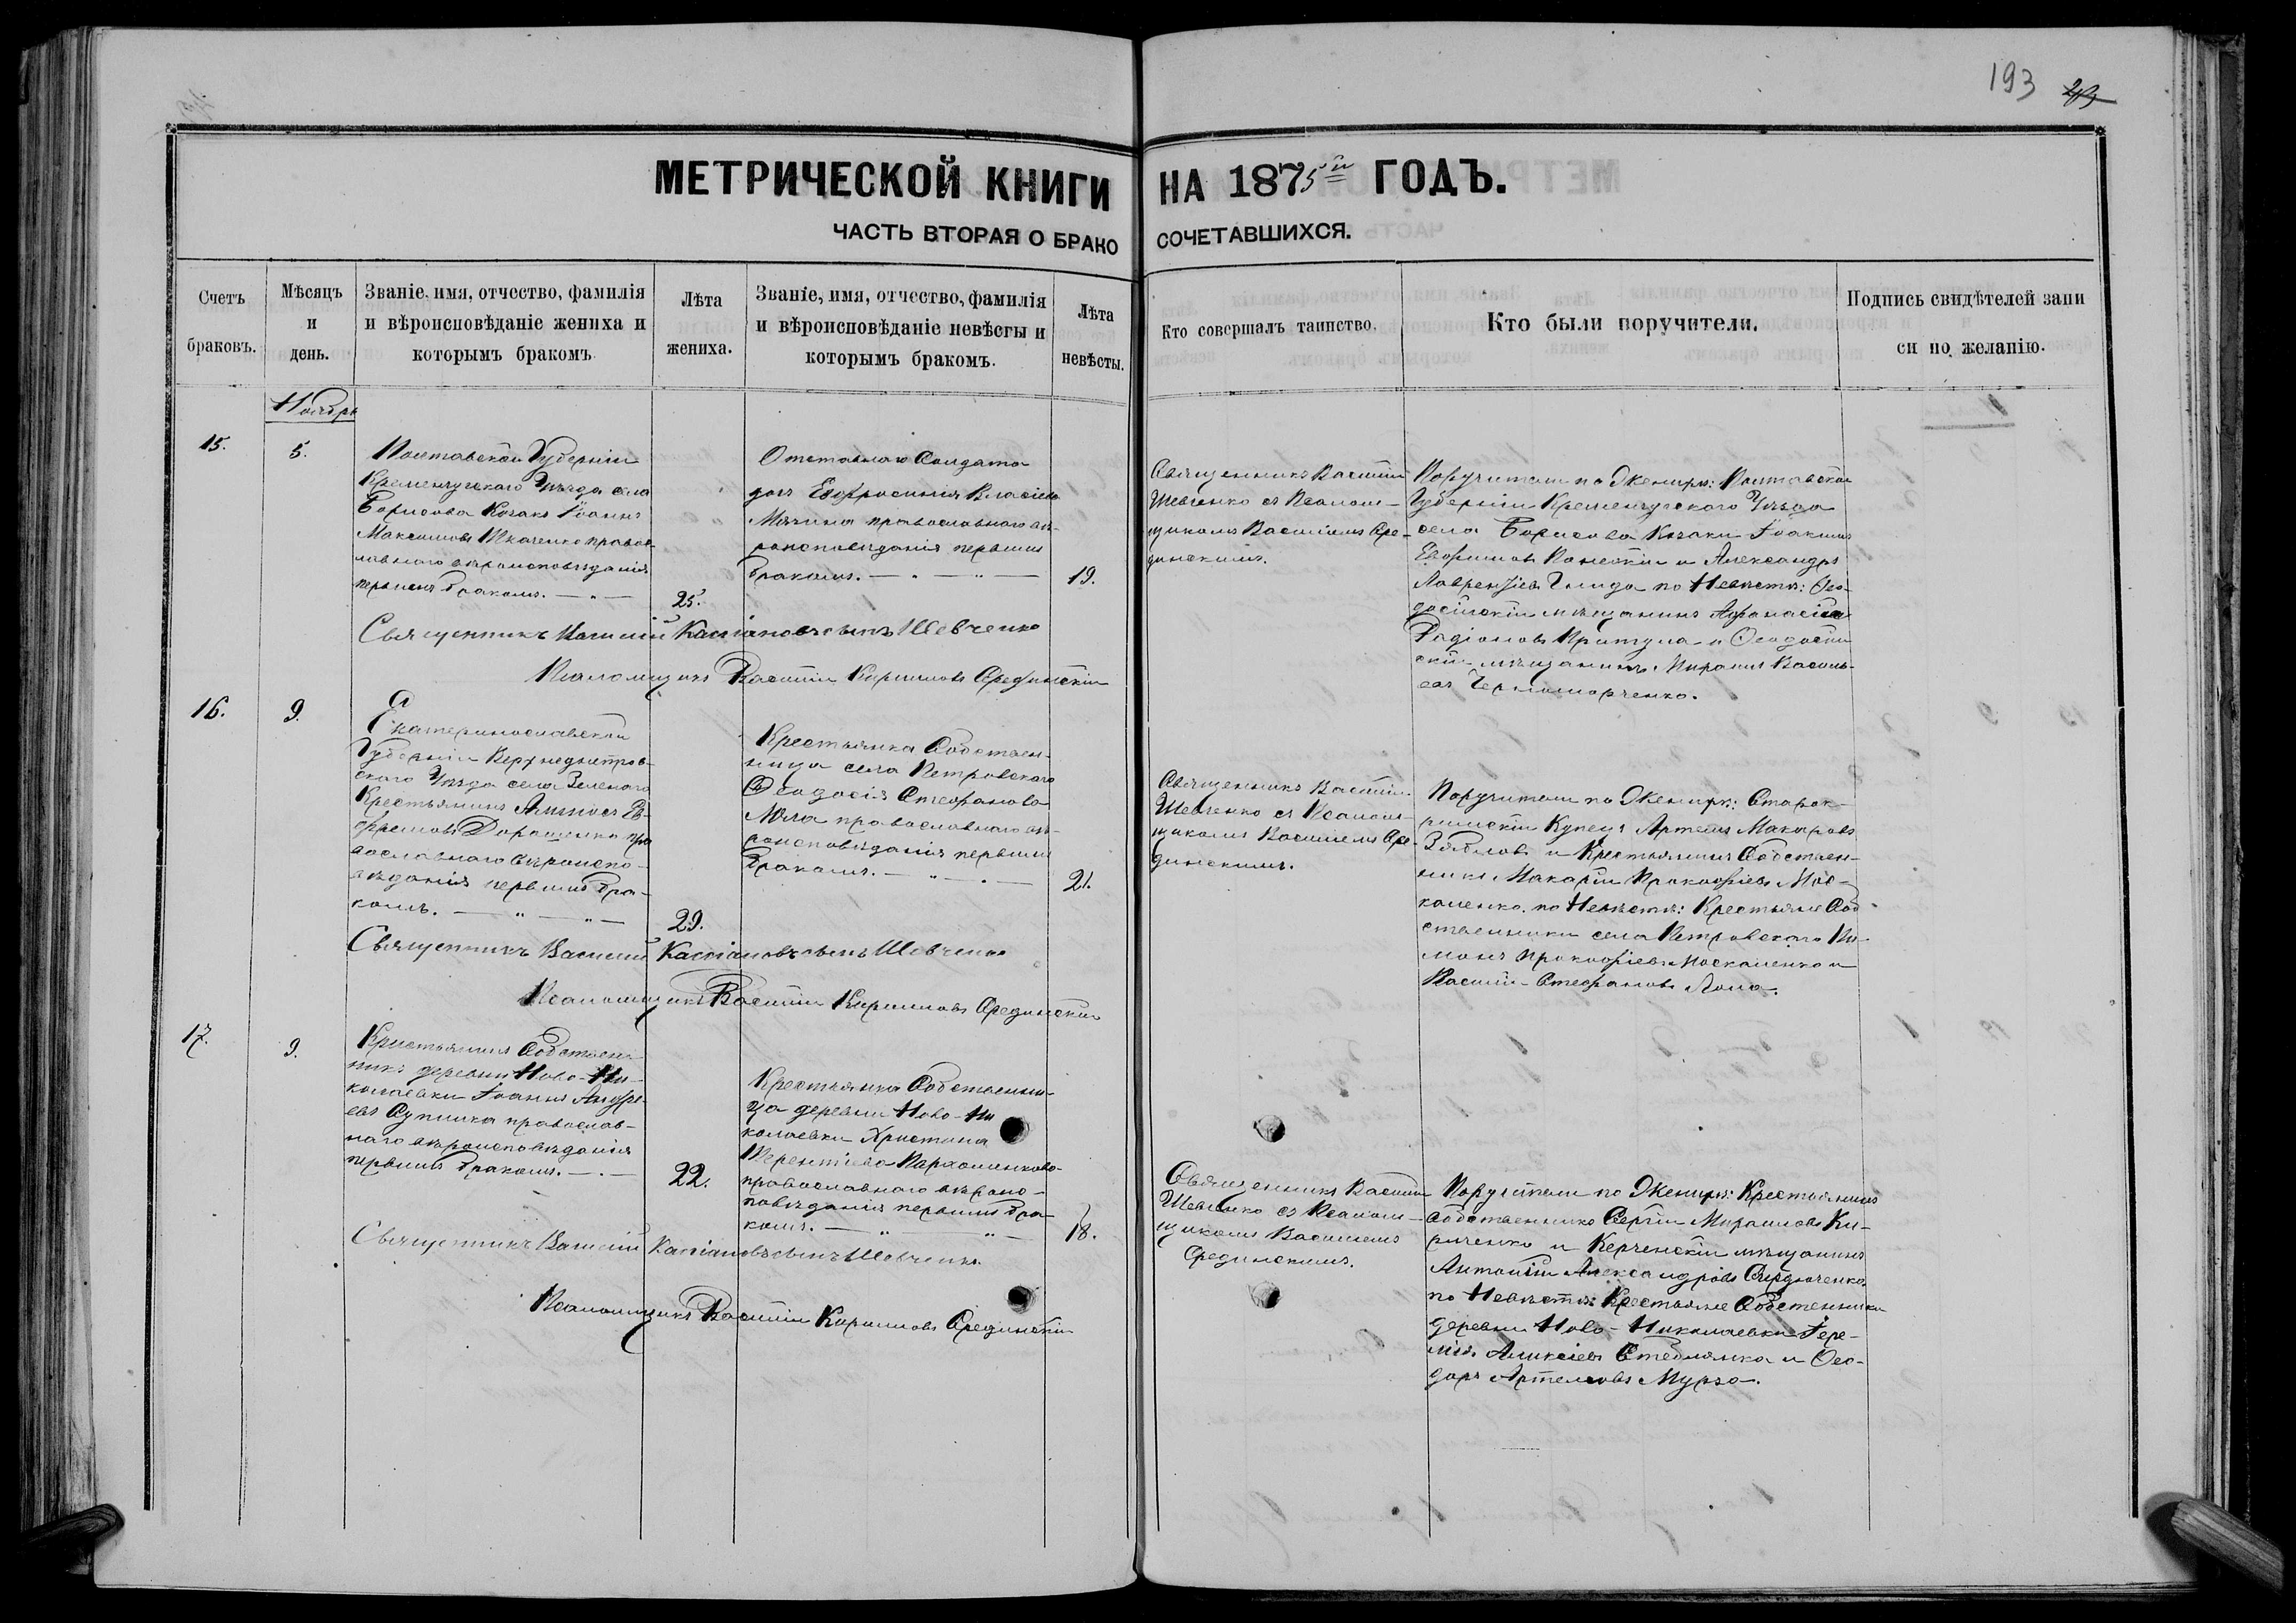 193 213
МЕТРИЧЕСКОЙ КНИГИ НА 1875й ГОДЪ.
ЧАСТЬ ВТОРАЯ О БРАКОСОЧЕТАВШИХСЯ.
Счетъ браковъ.
Мѣсяцъ и день.
Званіе, имя, отчество, фамилія
и вѣроисповѣданіе жениха и
которымъ бракомъ
Лѣта
жениха.
Званіе, имя, отчество, фамилія
и вѣроисповѣданіе невѣсты и
которымъ бракомъ.
Лѣта
невѣсты.
Кто совершалъ таинство.
Кто были поручители.
Подпись свидѣтелей запи
си по желанію.
Ноябрь
15.
5.
Полтавской Губерніи
Кременчугскаго Уѣзда села
Борисова Козакъ Іоаннъ
Максимовъ Ткаченко правос-
лавнаго вѣроисповѣданія
первымъ бракомъ.
25.
Отставнаго Солдата
дочь Евфросинія Власіева
Мячина православнаго вѣ-
роисповѣданія первымъ
бракомъ.
19.
Священникъ Василій
Шевченко съ Псалом-
щикомъ Василіемъ Сре-
динскимъ.
Поручители по Женихѣ: Полтавской
Губерніи Кременчугскаго Уѣзда
села Борисова Козаки Іоакимъ
Евфимовъ и Александръ
Лаврентіевъ по Невѣстѣ: Ѳео-
досійскій мѣщанинъ Афанасій
Радіоновъ Притула и Ѳеодосій
скій мѣщанинъ Миронъ Василь-
евъ Черноморченко.
Священникъ Василій Касіановъ сынъ Шевченко
Псаломщикъ Василій Кириловъ Срединскій
16.
9.
Екатеринославской
Губерніи Верхнеднѣпров-
скаго Уѣзда села Зеленаго
Крестьянинъ Амносъ Ев-
фремовъ Дорошенко пра
вославнаго вѣроиспо-
вѣданія первымъ бра-
комъ.
29.
Крестьянка Собствен-
ница села Петровскаго
Ѳеодосія Стефанова
православнаго вѣ-
роисповѣданія первымъ
бракомъ.
21.
Священникъ Василій
Шевченко съ Псалом-
щикомъ Василіемъ Сре-
динскимъ.
Поручители по Женихѣ: Старок-
рымскій Купецъ Артемъ Макаровъ
Зябловъ и Крестьянинъ Собствен-
никъ Макарій Прокофіевъ Мос-
каленко. по Невѣстѣ: Крестьяне Соб
ственники села Петровскаго Пи-
монъ Прокофіевъ Москаленко и
Василій Стефановъ
Священникъ Василій Касіановъ сынъ Шевченко
Псаломщикъ Василій Кириловъ Срединскій
17.
9.
Крестьянинъ Собствен-
никъ деревни Ново-Ни-
колаевки Іоаннъ Андре-
евъ Супника православ-
наго вѣроисповѣданія
первымъ бракомъ.
22.
Крестьянка Собственни-
ца деревни Ново-Ни
колаевки Христина
Терентіева Пархоменкова
православнаго вѣроис-
повѣданія первымъ бра-
комъ.
18.
Священникъ Василій
Шевченко съ Псалом-
щикомъ Василіемъ
Срединскимъ.
Поручители по Женихѣ: Крестьянинъ
Собственникъ Сергій Мироновъ Ки-
риченко и Керченскій мѣщанинъ
Антоній Александровъ Сердюченко
по Невѣстѣ: Крестьяне Собственники
деревни Ново-Николаевки Іере-
мія Аликсіевъ Стеблянка и Ѳео-
доръ Артемовъ Мурза.
Священникъ Василій Касіановъ сынъ Шевченко
Псаломщикъ Василій Кириловъ Срединскій